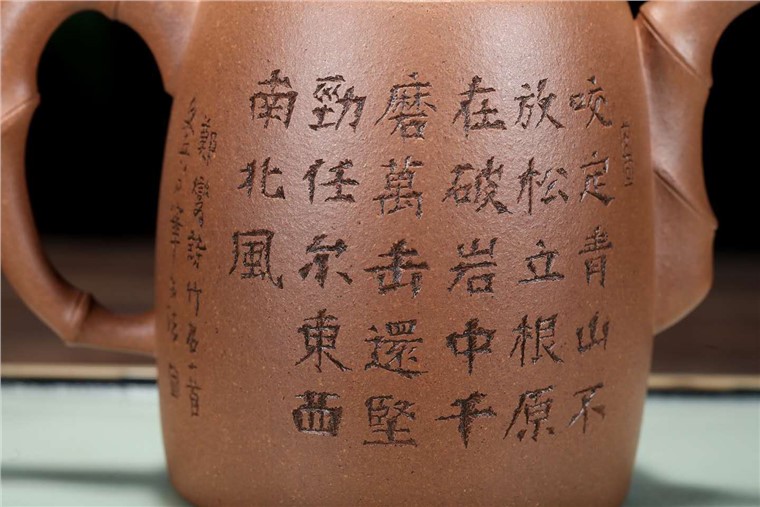 咬定青山不
放松立根原
在破岩中千
磨萬击還堅
勁任尔東西
南北風
鄭燮詩竹石一首